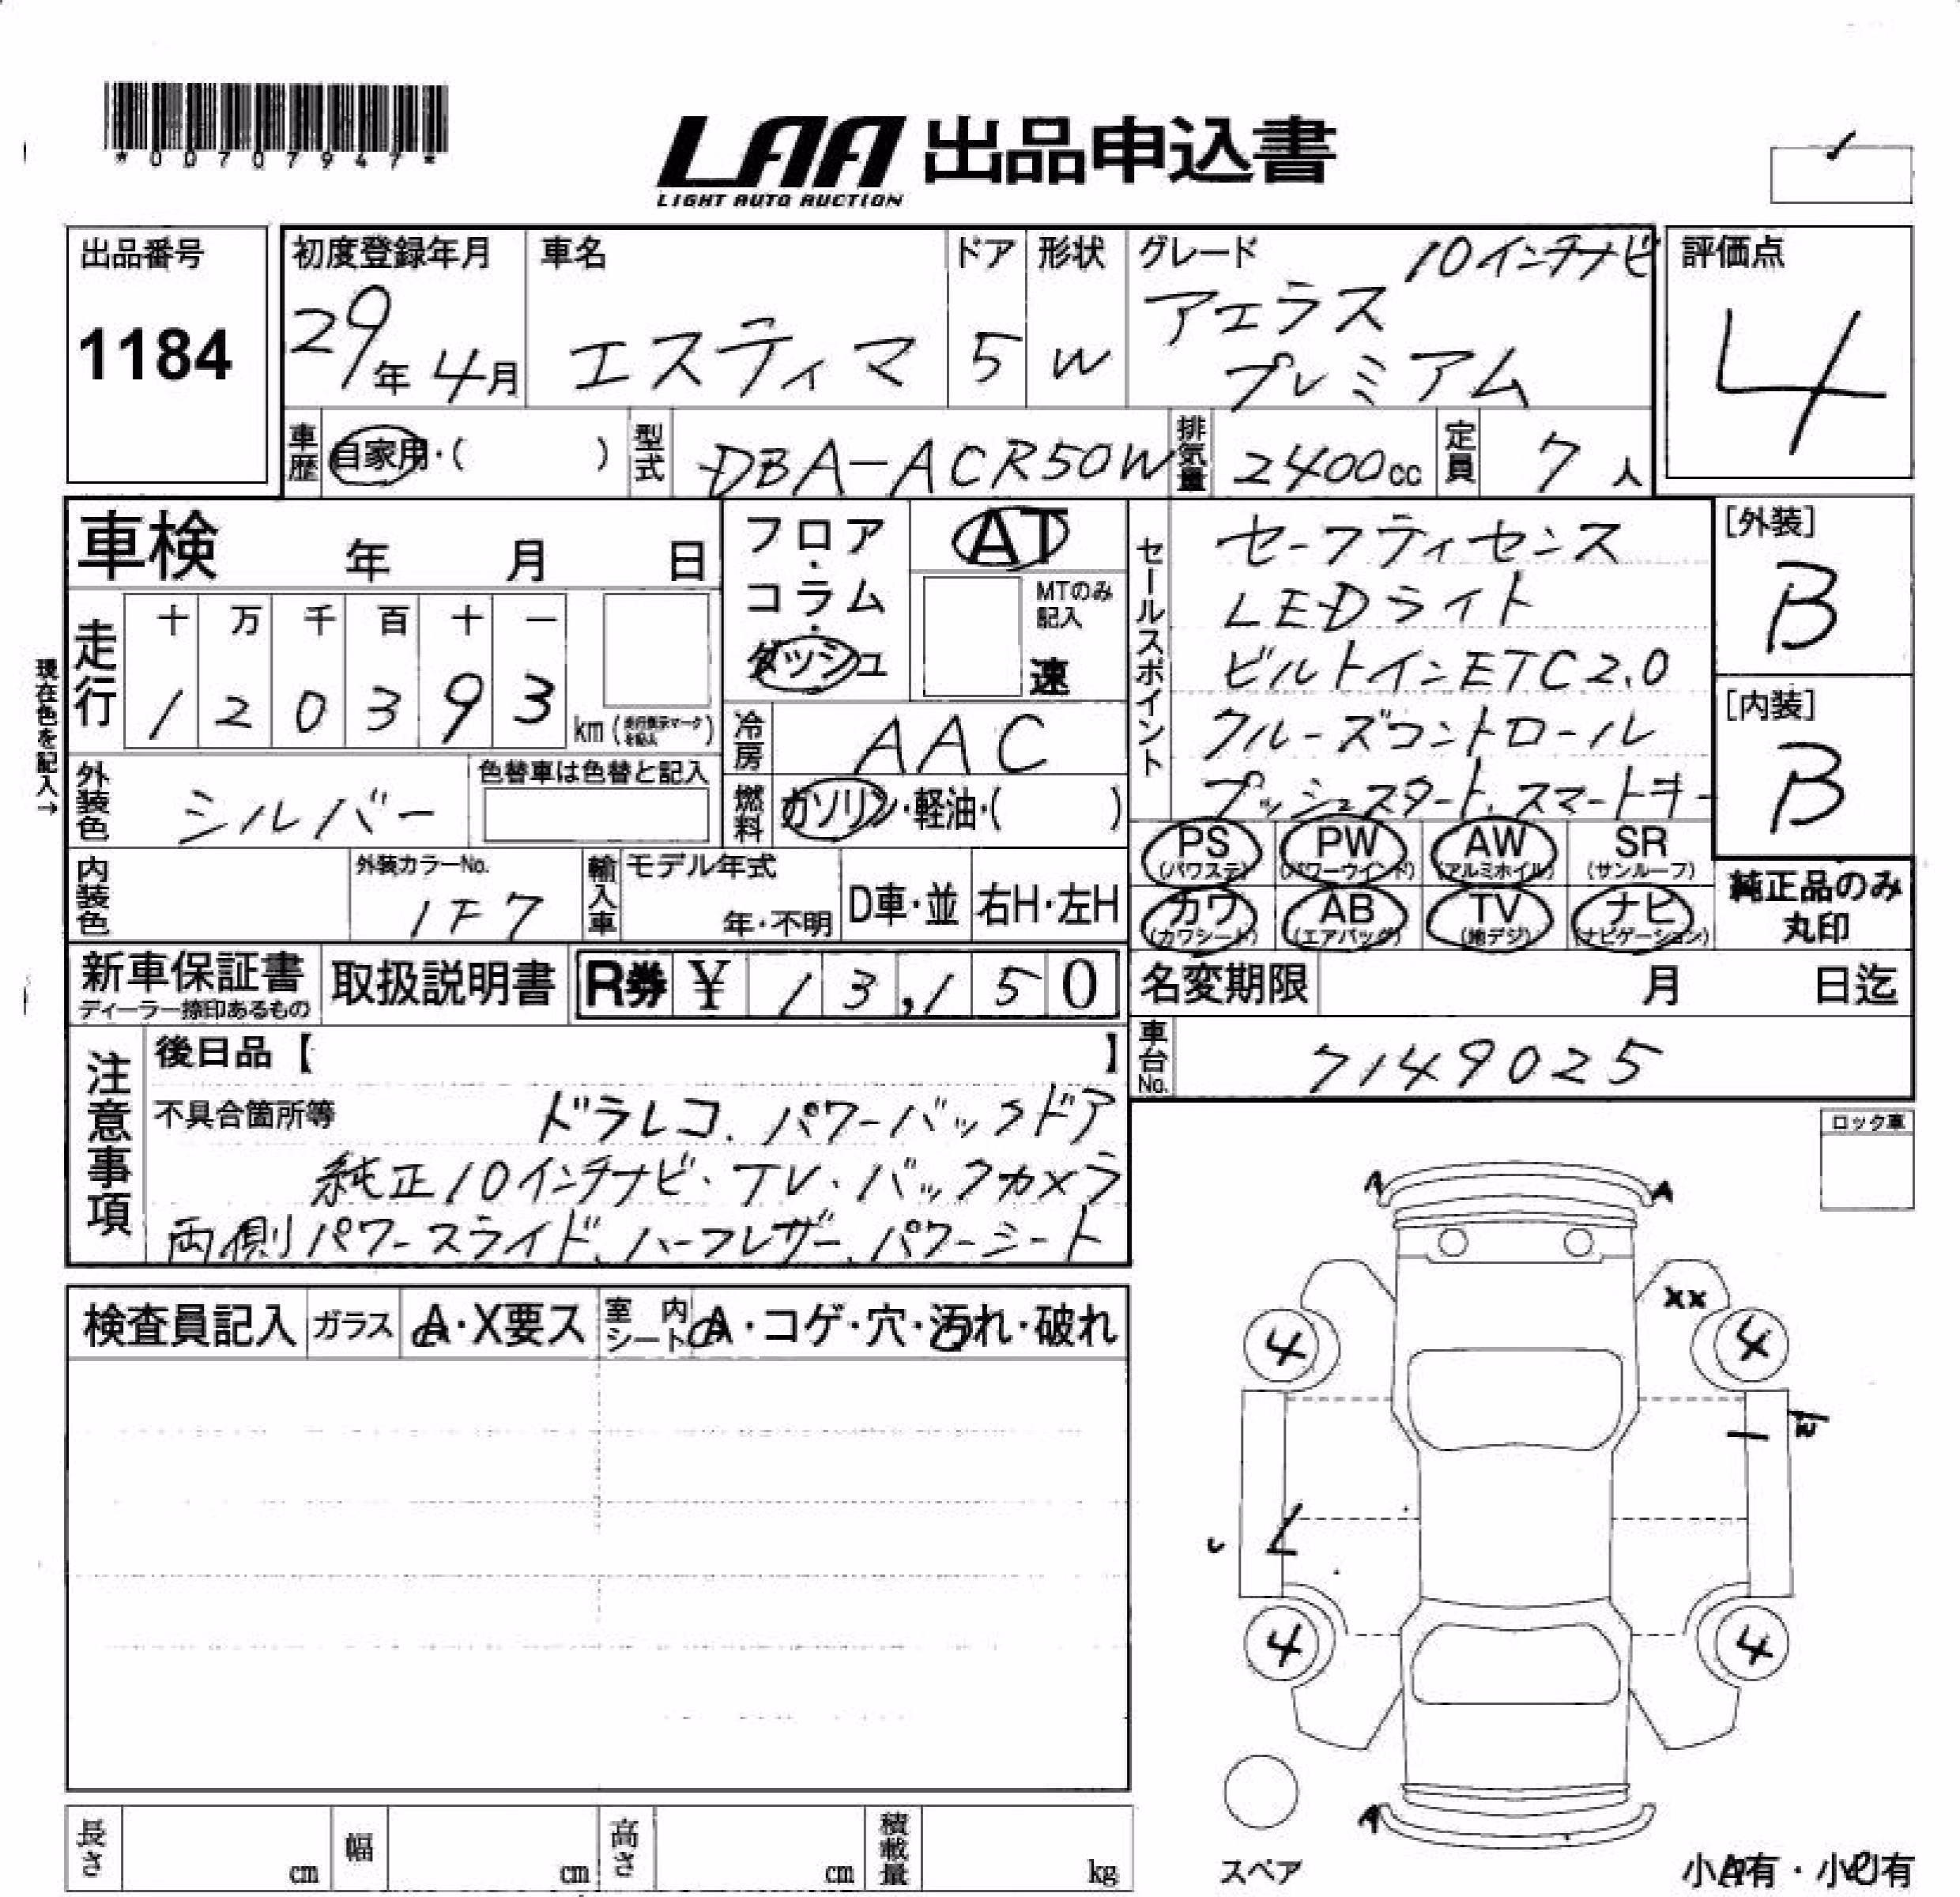 *00707947*
LAA 出品申込書
LIGHT AUTO AUCTION
出品番号
1184
初度登録年月
29年 4月
車名
エスティマ
ドア
5
形状
W
グレード
10インチナビ
アエラス
プレミアム
評価点
4
車歴
自家用・( )
型式
DBA-ACR50W
排気量
2400cc
定員
7人
車検 年 月 日
現在色を記入→
走行
十 万 千 百 十 一
1 2 0 3 9 3
km(走行表示マークを記入)
フロア・
コラム・
ダッシュ
AT
MTのみ
記入
速
冷房
AAC
燃料
ガソリン・軽油・( )
セールスポイント
セーフティセンス
LEDライト
ビルトインETC2.0
クルーズコントロール
プッシュスタート、スマートキー
[外装]
B
[内装]
B
外装色
シルバー
色替車は色替と記入
内装色
外装カラーNo.
1F7
輸入車
モデル年式
年・不明
D車・並
右H・左H
PS PW AW SR
(パワステ) (パワーウインド) (アルミホイル) (サンルーフ)
カワ AB TV ナビ
(カワシート) (エアバッグ) (地デジ) (ナビゲーション)
純正品のみ
丸印
新車保証書
ディーラー捺印あるもの
取扱説明書
R券 ¥ 13,150
名変期限 月 日迄
車台No.
7149025
注意事項
後日品【 】
不具合箇所等
ドラレコ、パワーバックドア
純正10インチナビ・TV・バックカメラ
両側パワースライド、ハーフレザー、パワーシート
ロック車
検査員記入
ガラス
A・X要ス
室内
シート
A・コゲ・穴・汚れ・破れ
A A
XX
4 4
4 4
A
スペア
小A有・小U有
長さ cm
幅 cm
高さ cm
積載量 kg